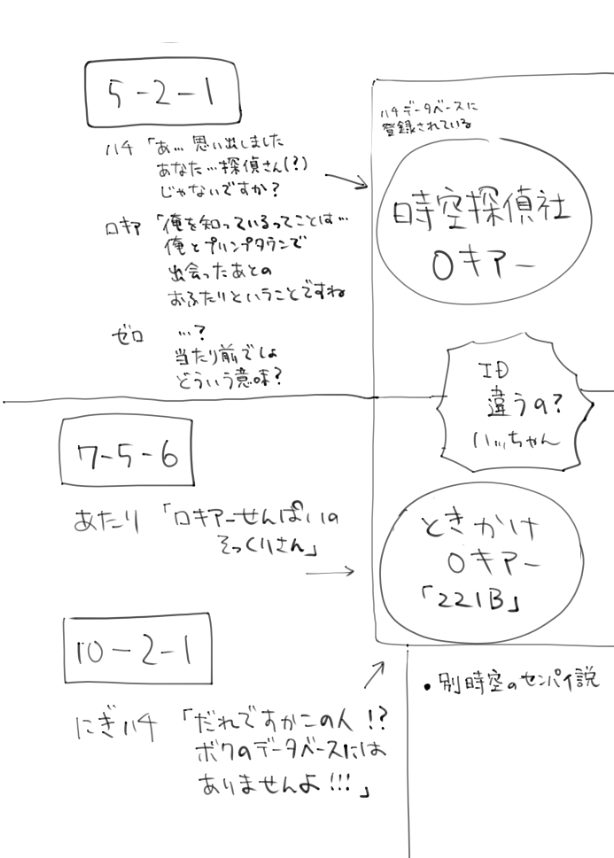 5-2-1
ハチ「あ… 思い出しました
あなた…探偵さん(?)
じゃないですか?
ロキア「俺を知っているってことは…
俺とプリンプタウンで
出会ったあとの
おふたりということですね
ゼロ …?
当たり前でしょ
どういう意味?
ハチデータベースに
登録されている
時空探偵社
ロキアー
ID
違うの?
ハッちゃん
7-5-6
あたり「ロキアーせんぱいの
そっくりさん」
ときかけ
ロキアー
「221B」
10-2-1
にぎハチ「だれですかこの人!?
ボクのデータベースには
ありませんよ!!!」
・別時空のセンパイ説